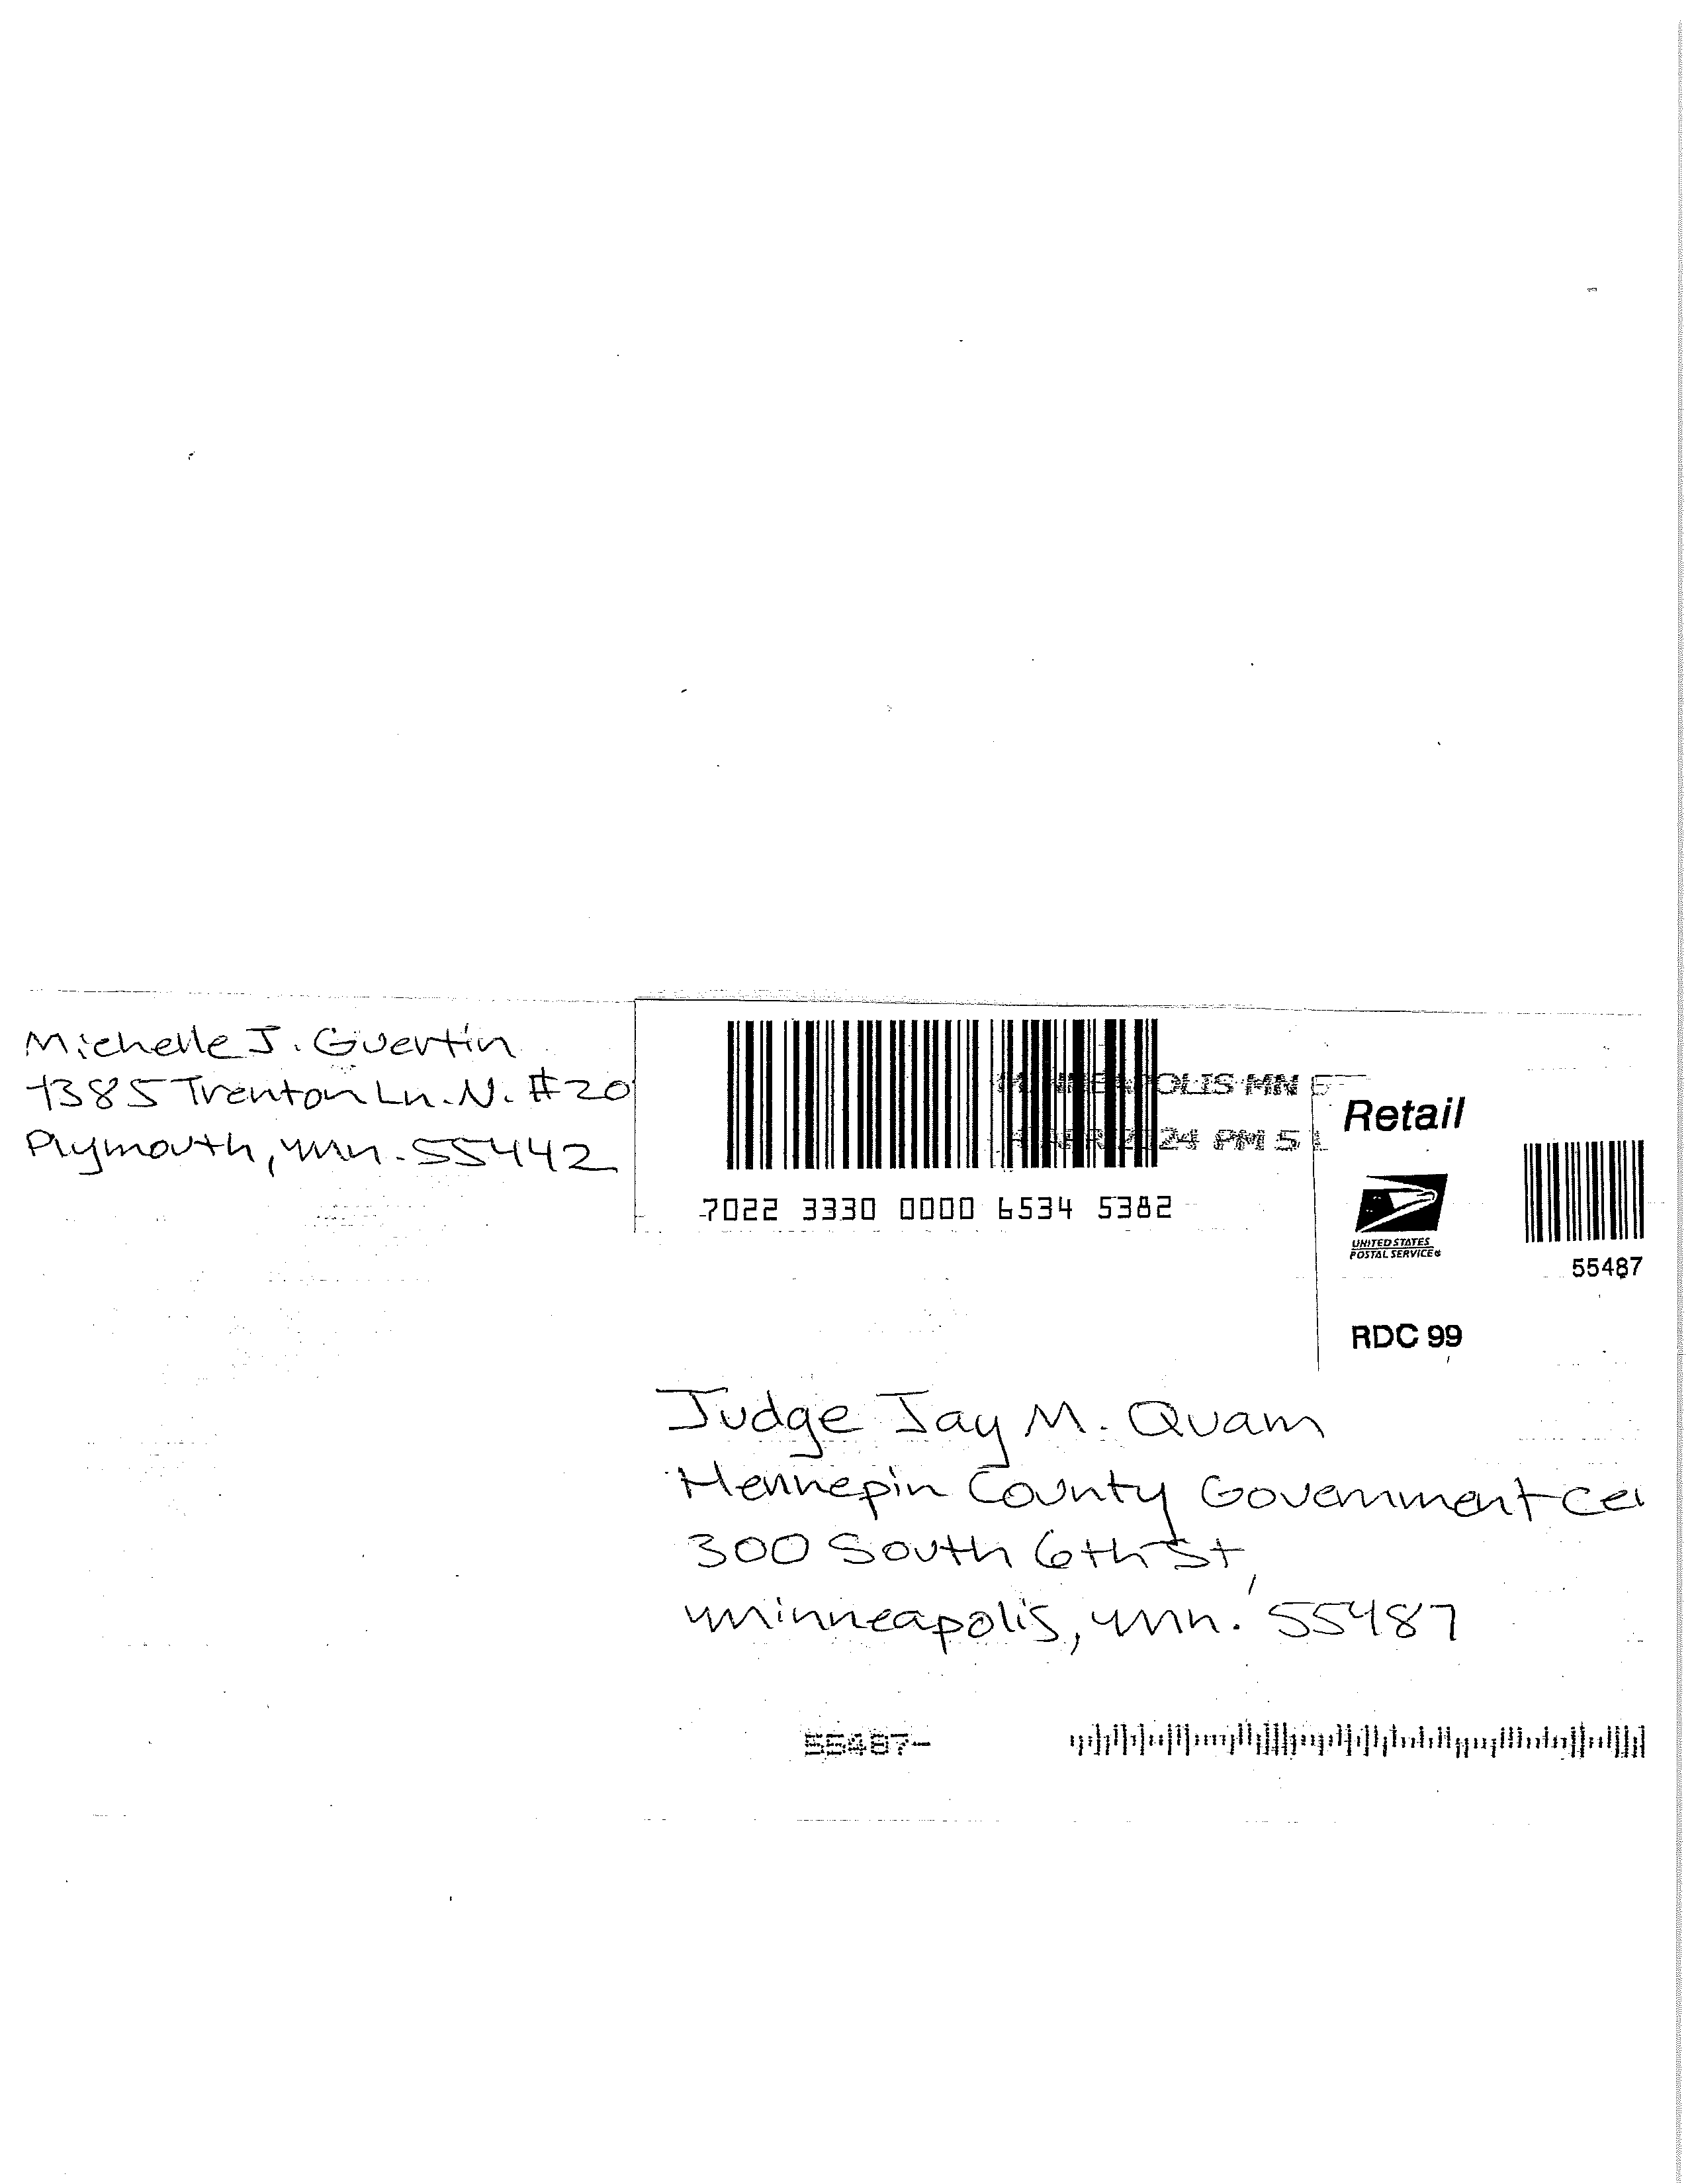 Michelle J. Guertin
4385 Trenton Ln. N. #20
Plymouth, Mn. 55442
OLIS MN
24 PM 5 L
7022 3330 0000 6534 5382
Retail
UNITED STATES
POSTAL SERVICE®
55487
RDC 99
Judge Jay M. Quam
Hennepin County Government Ce
300 South 6th St,
Minneapolis, Mn. 55487
55487-